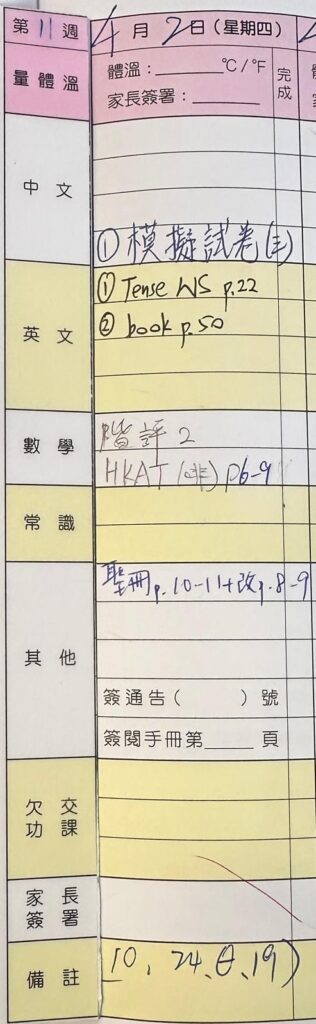 第 11 週 4 月 2 日 (星期四)
量體溫 體溫：______°C/°F 完成
家長簽署：______
中文
① 模擬試卷(三)
英文 ① Tense WS p.22
② book p.50
數學 階評 2
HKAT (啡) p6-9
常識
其他 聖冊 p.10-11+改p.8-9
簽通告（　　）號
簽閱手冊第____頁
欠交功課
家長簽署
備註 10、24、θ、19)